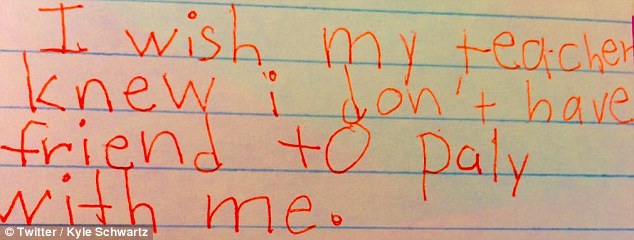 I wish my teacher
knew i don't have
friend to paly
with me.
© Twitter / Kyle Schwartz